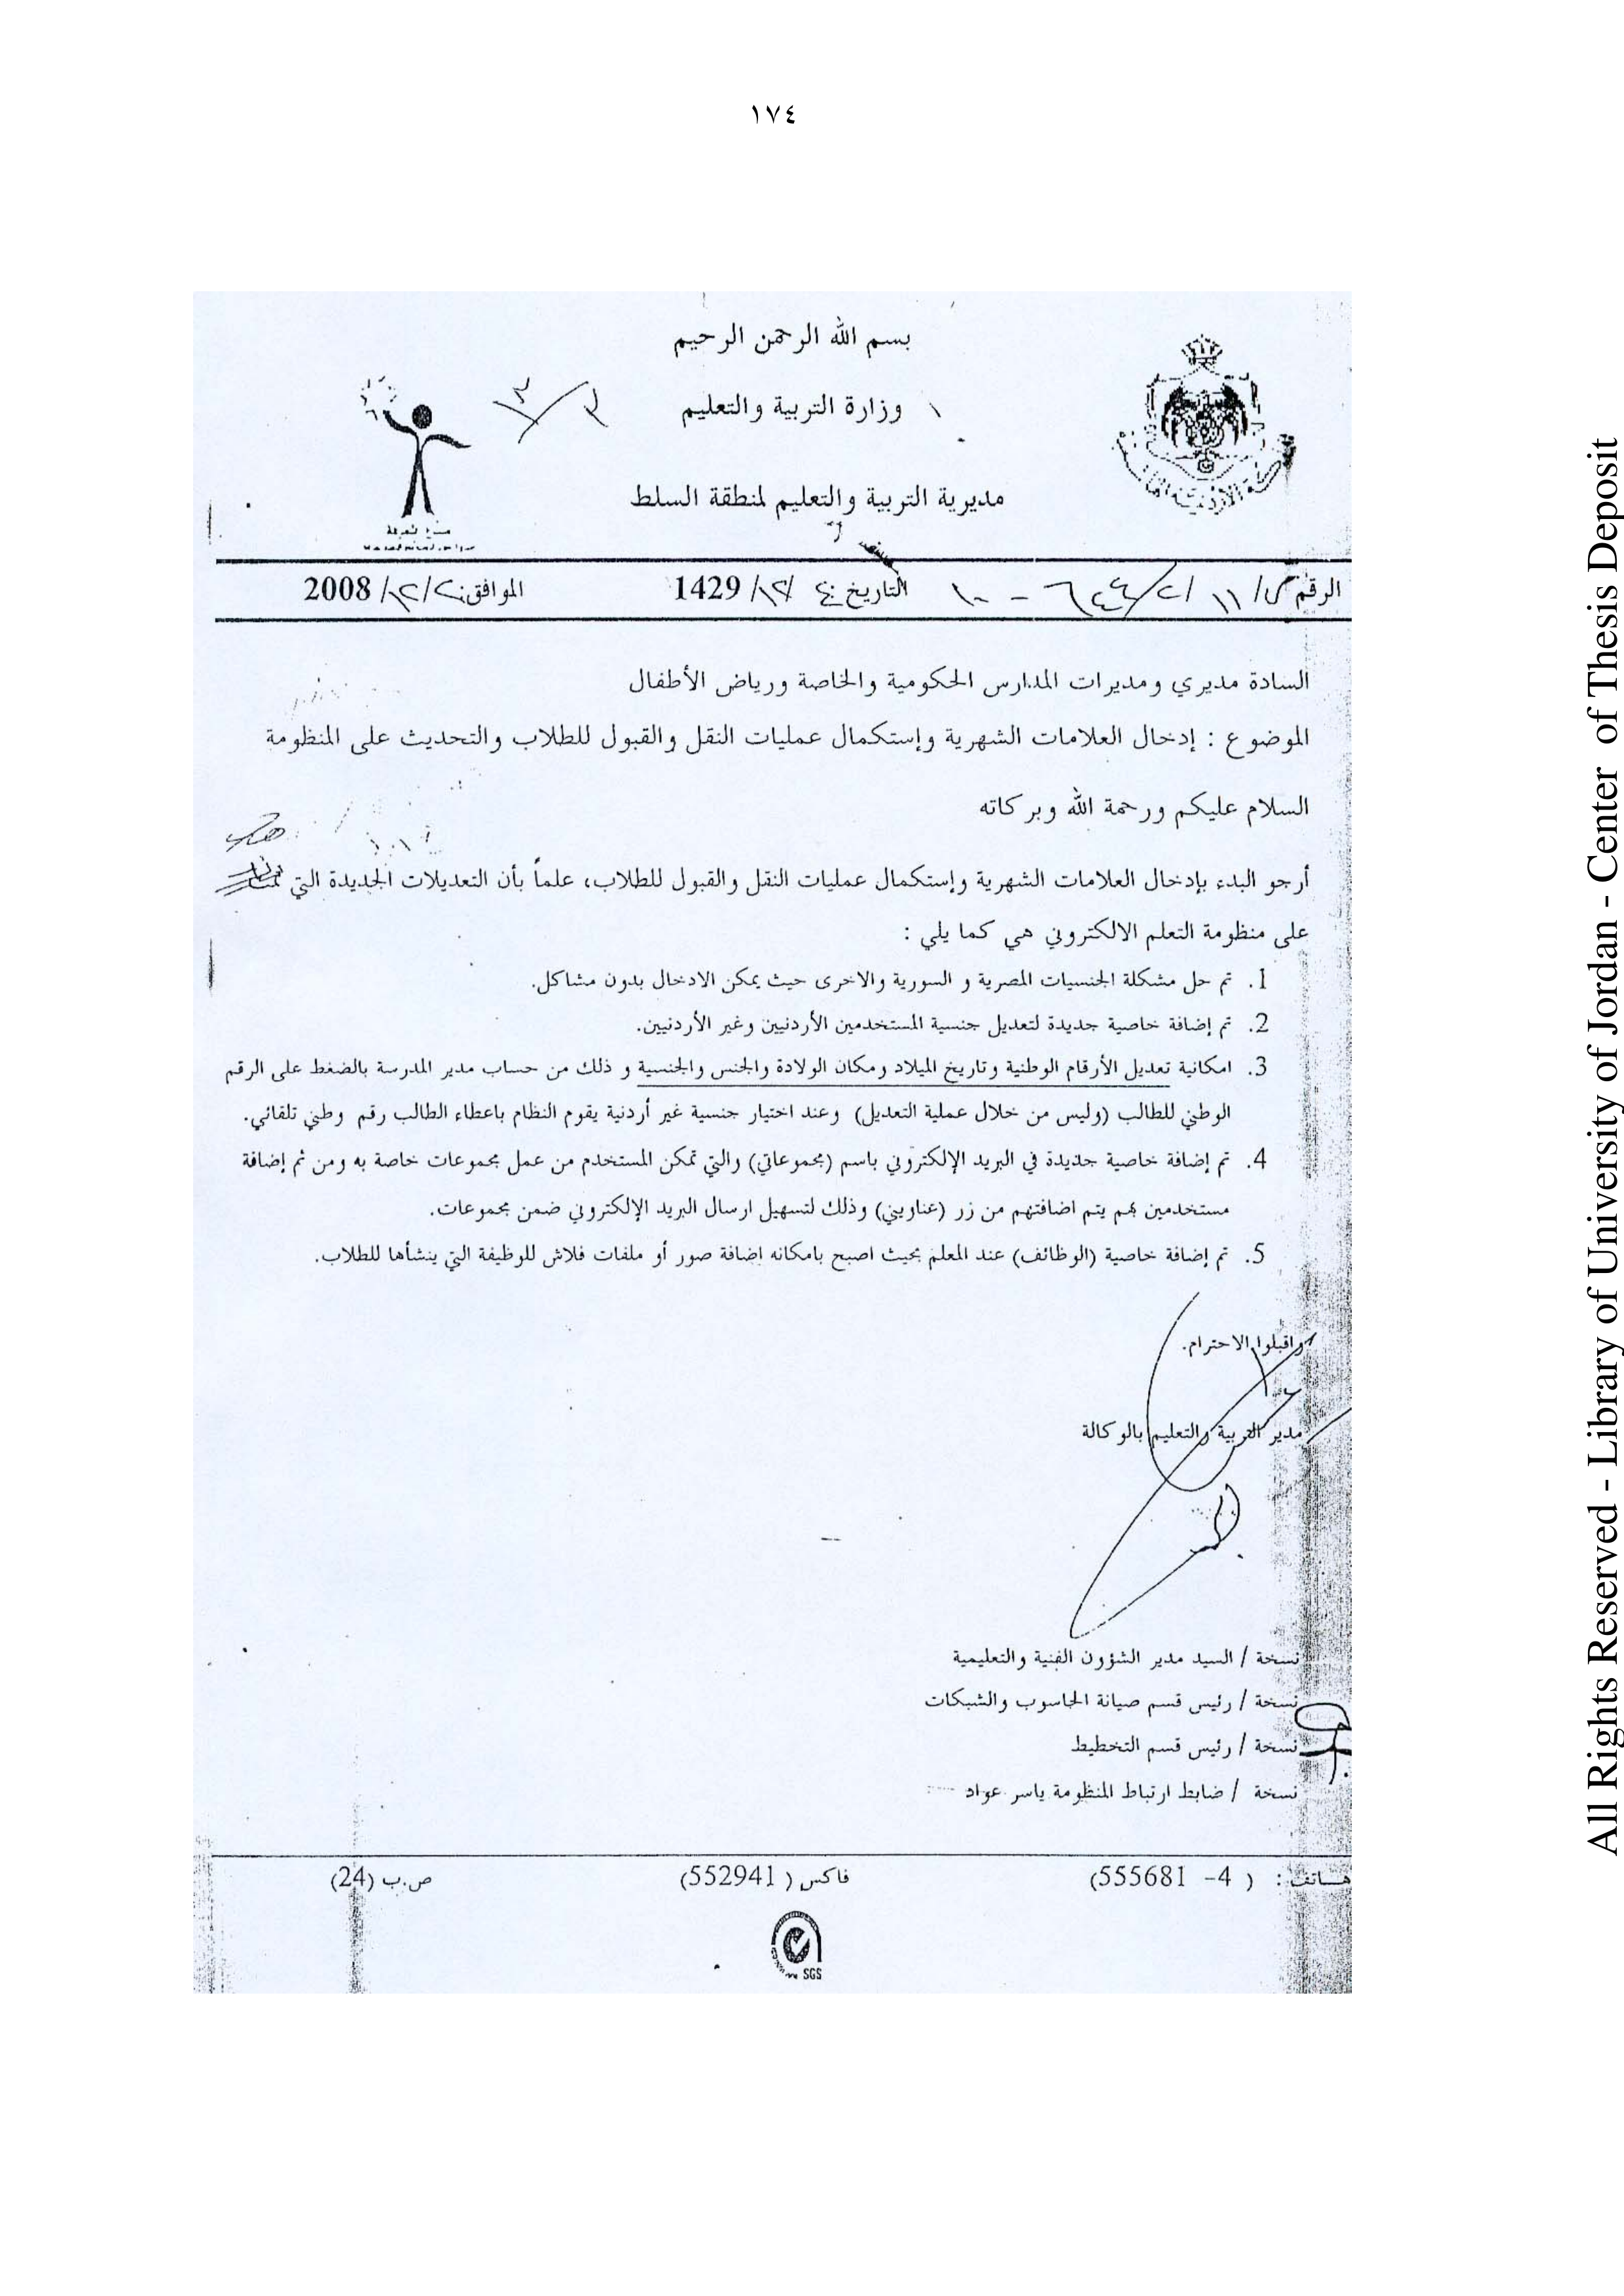 ١٧٤
بسم الله الرحمن الرحيم
وزارة التربية والتعليم
مديرية التربية والتعليم لمنطقة السلط
الرقم / ١١ / ٢ / التاريخ: ٤ /١٢/ 1429 الموافق: ٢ /١٢/ 2008
السادة مديري ومديرات المدارس الحكومية والخاصة ورياض الأطفال
الموضوع : إدخال العلامات الشهرية وإستكمال عمليات النقل والقبول للطلاب والتحديث على المنظومة
السلام عليكم ورحمة الله وبركاته
أرجو البدء بإدخال العلامات الشهرية وإستكمال عمليات النقل والقبول للطلاب، علماً بأن التعديلات الجديدة التي تمت
على منظومة التعلم الالكتروني هي كما يلي :
1. تم حل مشكلة الجنسيات المصرية و السورية والاخرى حيث يمكن الادخال بدون مشاكل.
2. تم إضافة خاصية جديدة لتعديل جنسية المستخدمين الأردنيين وغير الأردنيين.
3. امكانية تعديل الأرقام الوطنية وتاريخ الميلاد ومكان الولادة والجنس والجنسية و ذلك من حساب مدير المدرسة بالضغط على الرقم
الوطني للطالب (وليس من خلال عملية التعديل) وعند اختيار جنسية غير أردنية يقوم النظام باعطاء الطالب رقم وطني تلقائي.
4. تم إضافة خاصية جديدة في البريد الإلكتروني باسم (مجموعاتي) والتي تمكن المستخدم من عمل مجموعات خاصة به ومن ثم إضافة
مستخدمين بهم يتم اضافتهم من زر (عناويني) وذلك لتسهيل ارسال البريد الإلكتروني ضمن مجموعات.
5. تم إضافة خاصية (الوظائف) عند المعلم بحيث اصبح بامكانه إضافة صور أو ملفات فلاش للوظيفة التي ينشأها للطلاب.
واقبلوا الاحترام.
مدير التربية والتعليم بالوكالة
نسخة / السيد مدير الشؤون الفنية والتعليمية
نسخة / رئيس قسم صيانة الحاسوب والشبكات
نسخة / رئيس قسم التخطيط
نسخة / ضابط ارتباط المنظومة ياسر عواد
هـاتف : ( 4- 555681) فاكس ( 552941) ص.ب (24)
SGS
All Rights Reserved - Library of University of Jordan - Center of Thesis Deposit